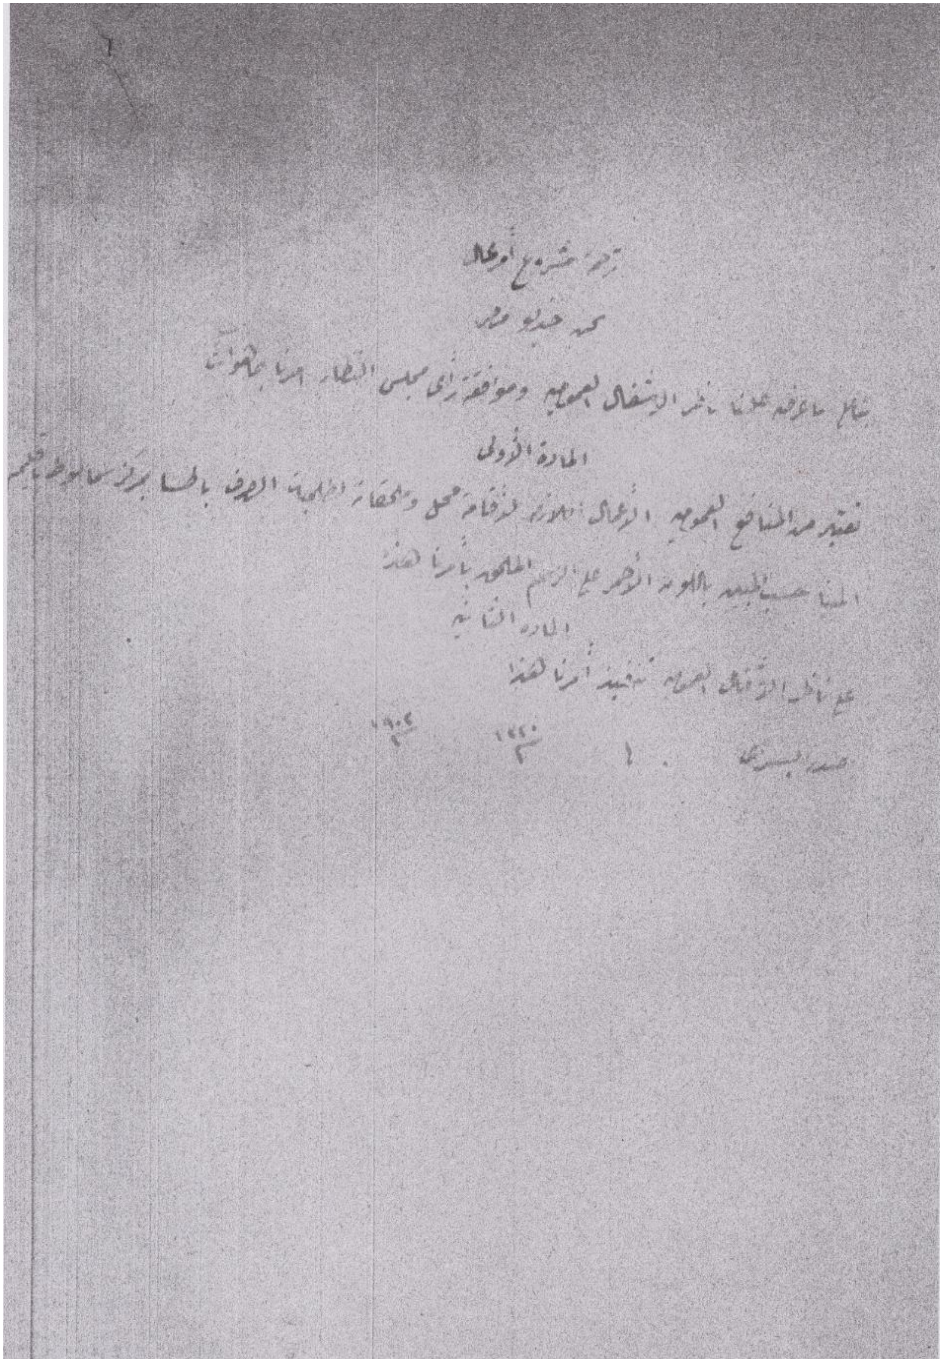 ترجمة مشروع أمر عال
نحن خديو مصر
بناء على ما عرضه علينا ناظر الاشغال العمومية وموافقة رأى مجلس النظار امرنا بما هو آت
المادة الأولى
تعتبر من المنافع العمومية الأعمال اللازمة لاقامة محل وملحقات الصرف بمركز سمالوط باقليم
المنيا حسب المبين باللون الأحمر على الرسم الملحق بأمرنا هذا
المادة الثانية
على ناظر الأشغال العمومية تنفيذ أمرنا هذا
صدر بسراى ١٣٢٠ ١٩٠٢